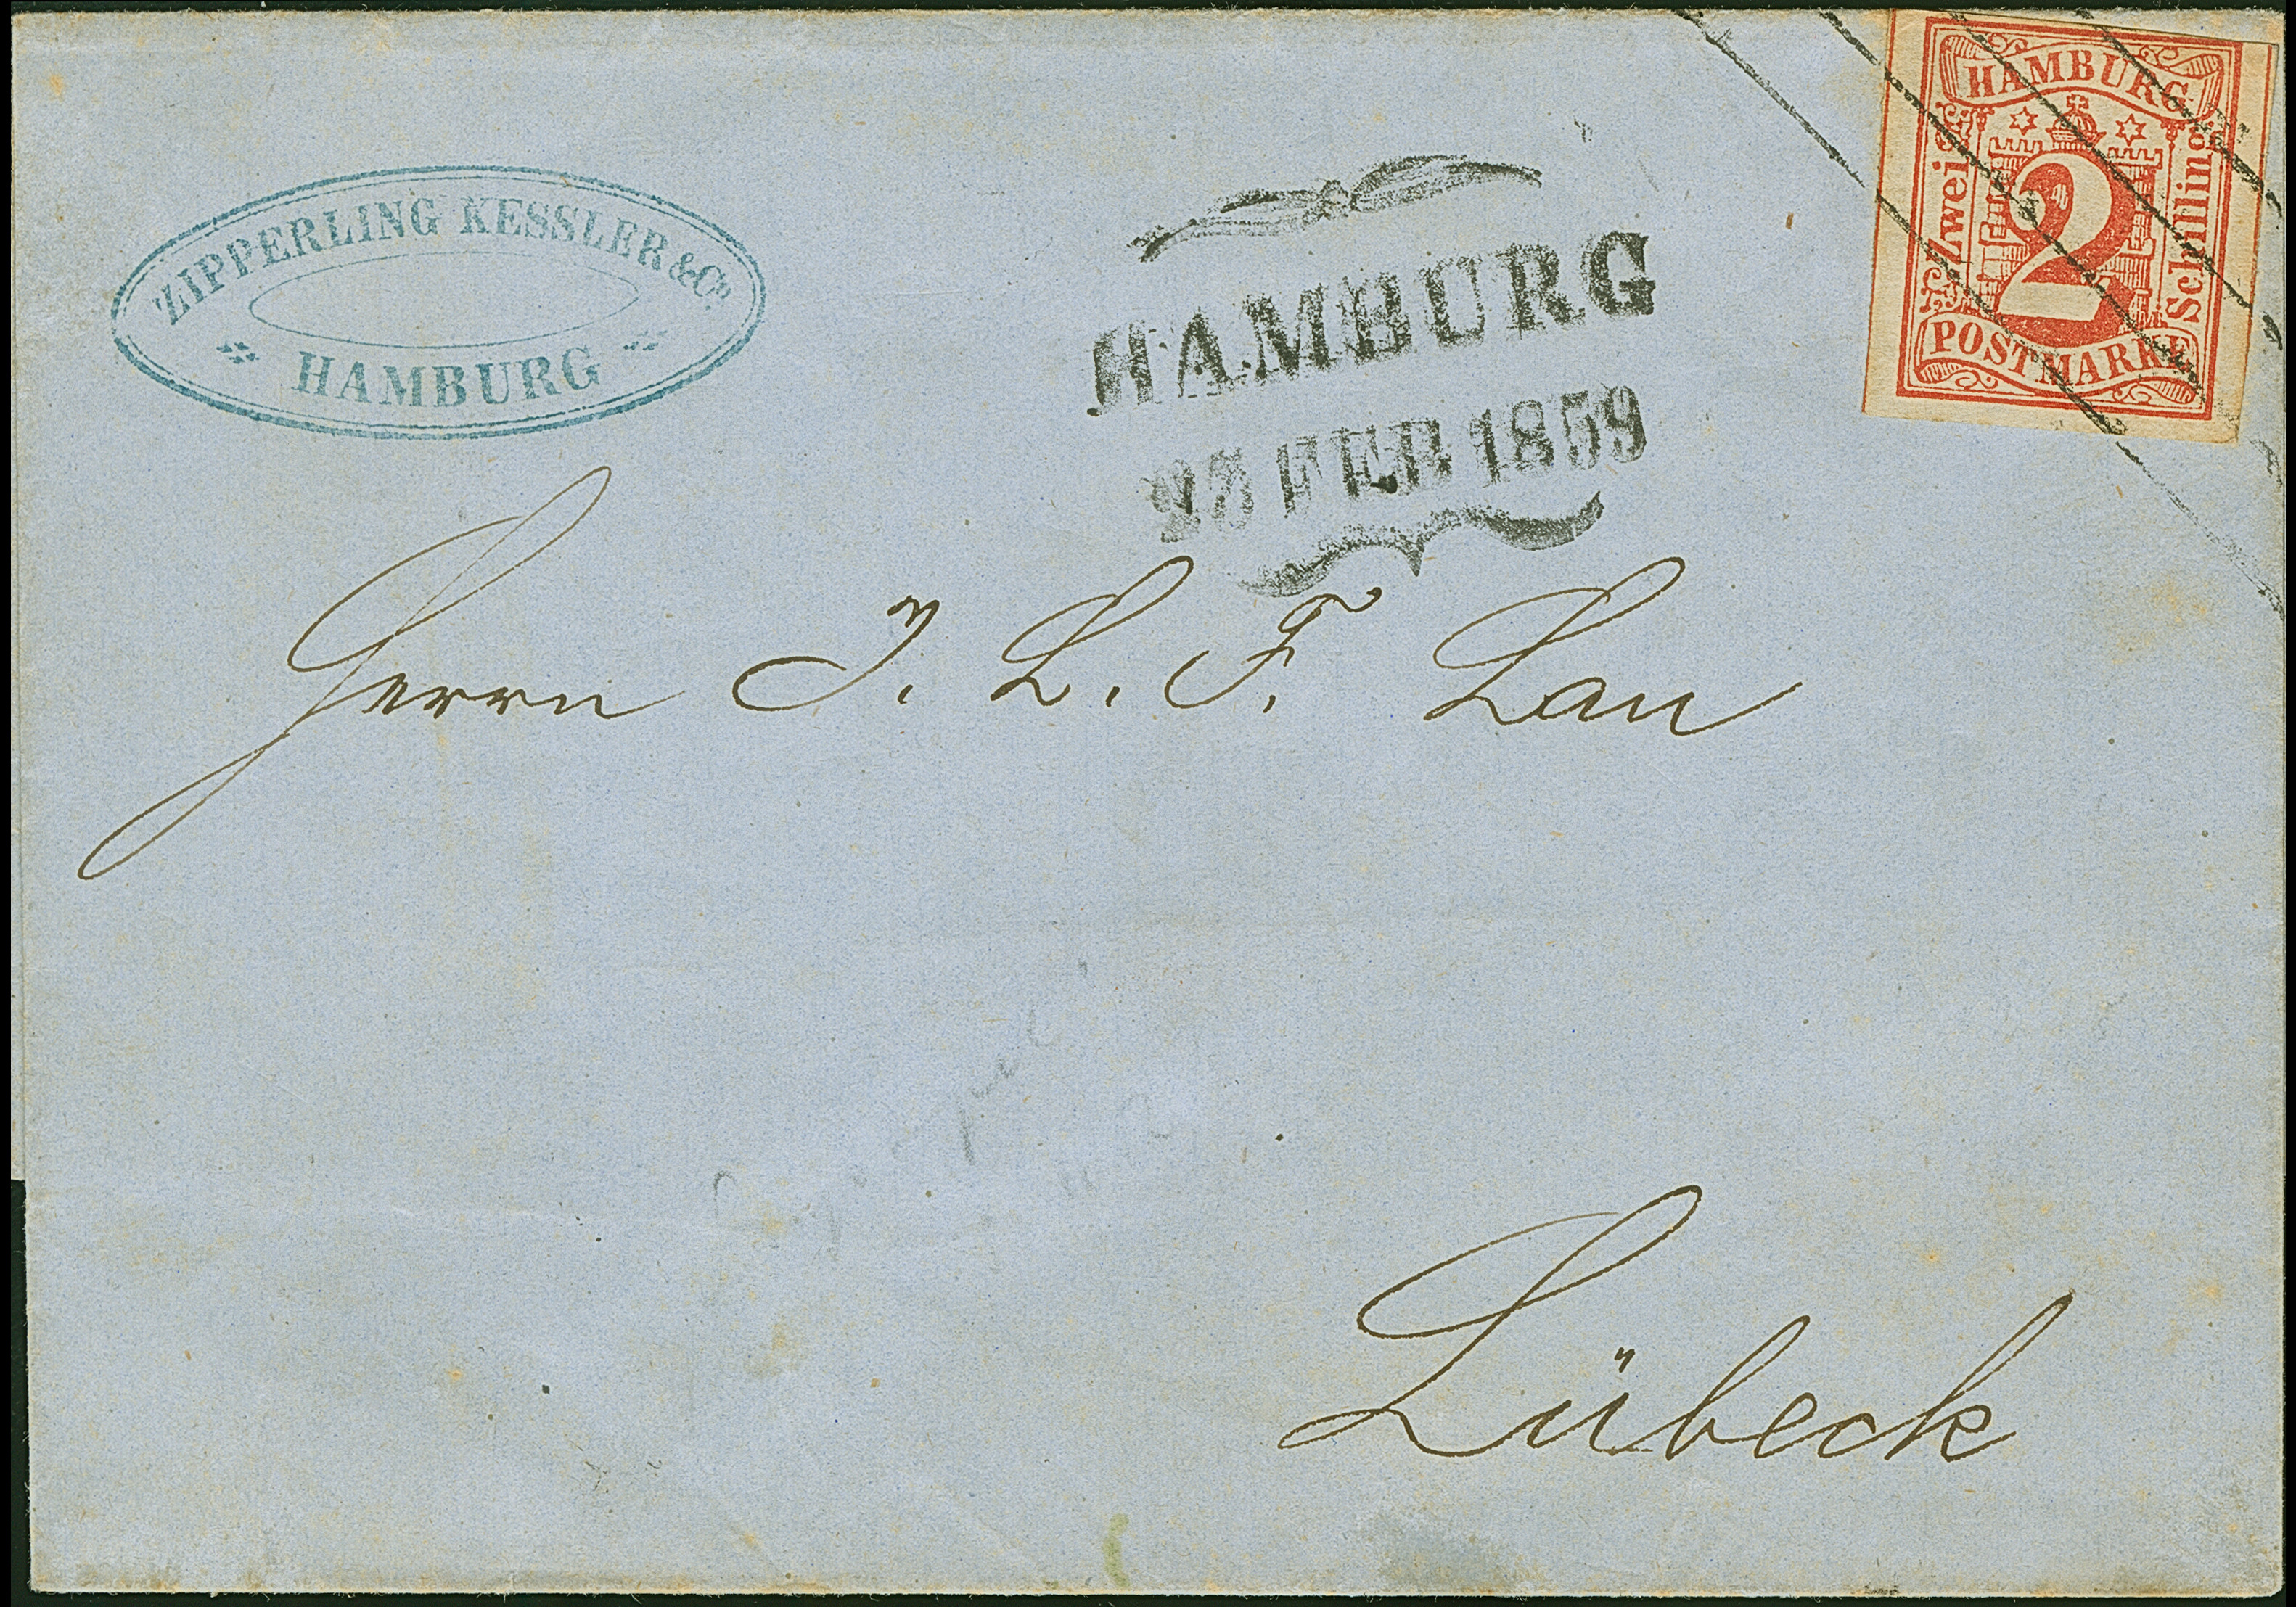 ZIPPERLING KESSLER & Co.
HAMBURG
HAMBURG
25 FEB 1859
HAMBURG
Zwei
2
Schilling
POSTMARKE
Herrn J. L. F. Lau
Lübeck